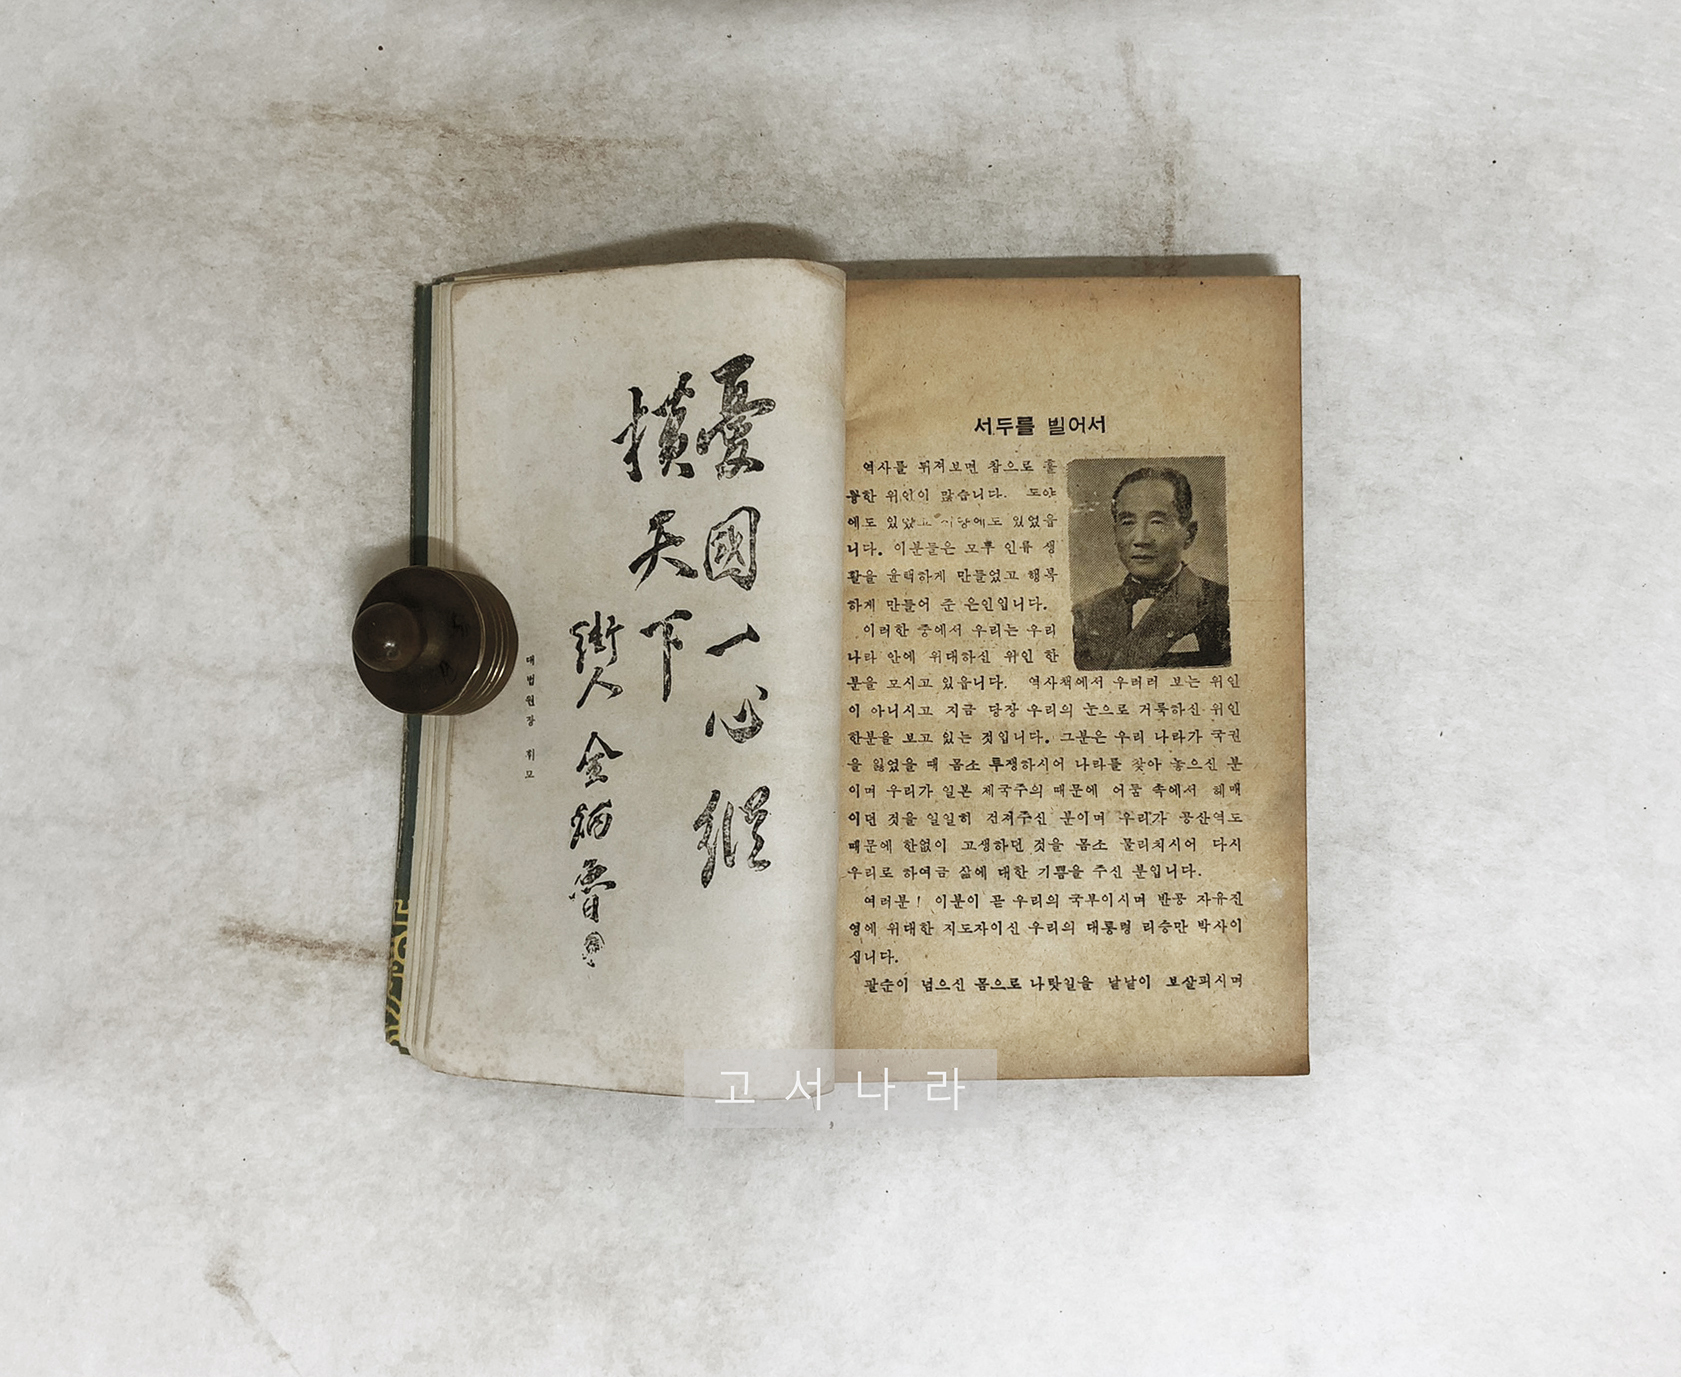 憂國一心縱
橫天下
街人 金炳魯
대법원장 휘모
서두를 빌어서
역사를 뒤져보면 참으로 훌
륭한 위인이 많습니다. 도야
에도 있었고 서양에도 있었읍
니다. 이분들은 모두 인류 생
활을 윤택하게 만들었고 행복
하게 만들어 준 은인입니다.
이러한 중에서 우리는 우리
나라 안에 위대하신 위인 한
분을 모시고 있읍니다. 역사책에서 우러러 보는 위인
이 아니시고 지금 당장 우리의 눈으로 거룩하신 위인
한분을 보고 있는 것입니다. 그분은 우리 나라가 국권
을 잃었을 때 몸소 투쟁하시어 나라를 찾아 놓으신 분
이며 우리가 일본 제국주의 때문에 어둠 속에서 헤매
이던 것을 일일히 건져주신 분이며 우리가 공산역도
때문에 한없이 고생하던 것을 몸소 물리치시어 다시
우리로 하여금 삶에 대한 기쁨을 주신 분입니다.
여러분! 이분이 곧 우리의 국부이시며 반공 자유진
영에 위대한 지도자이신 우리의 대통령 리승만 박사이
십니다.
팔순이 넘으신 몸으로 나랏일을 낱낱이 보살피시며
고서나라